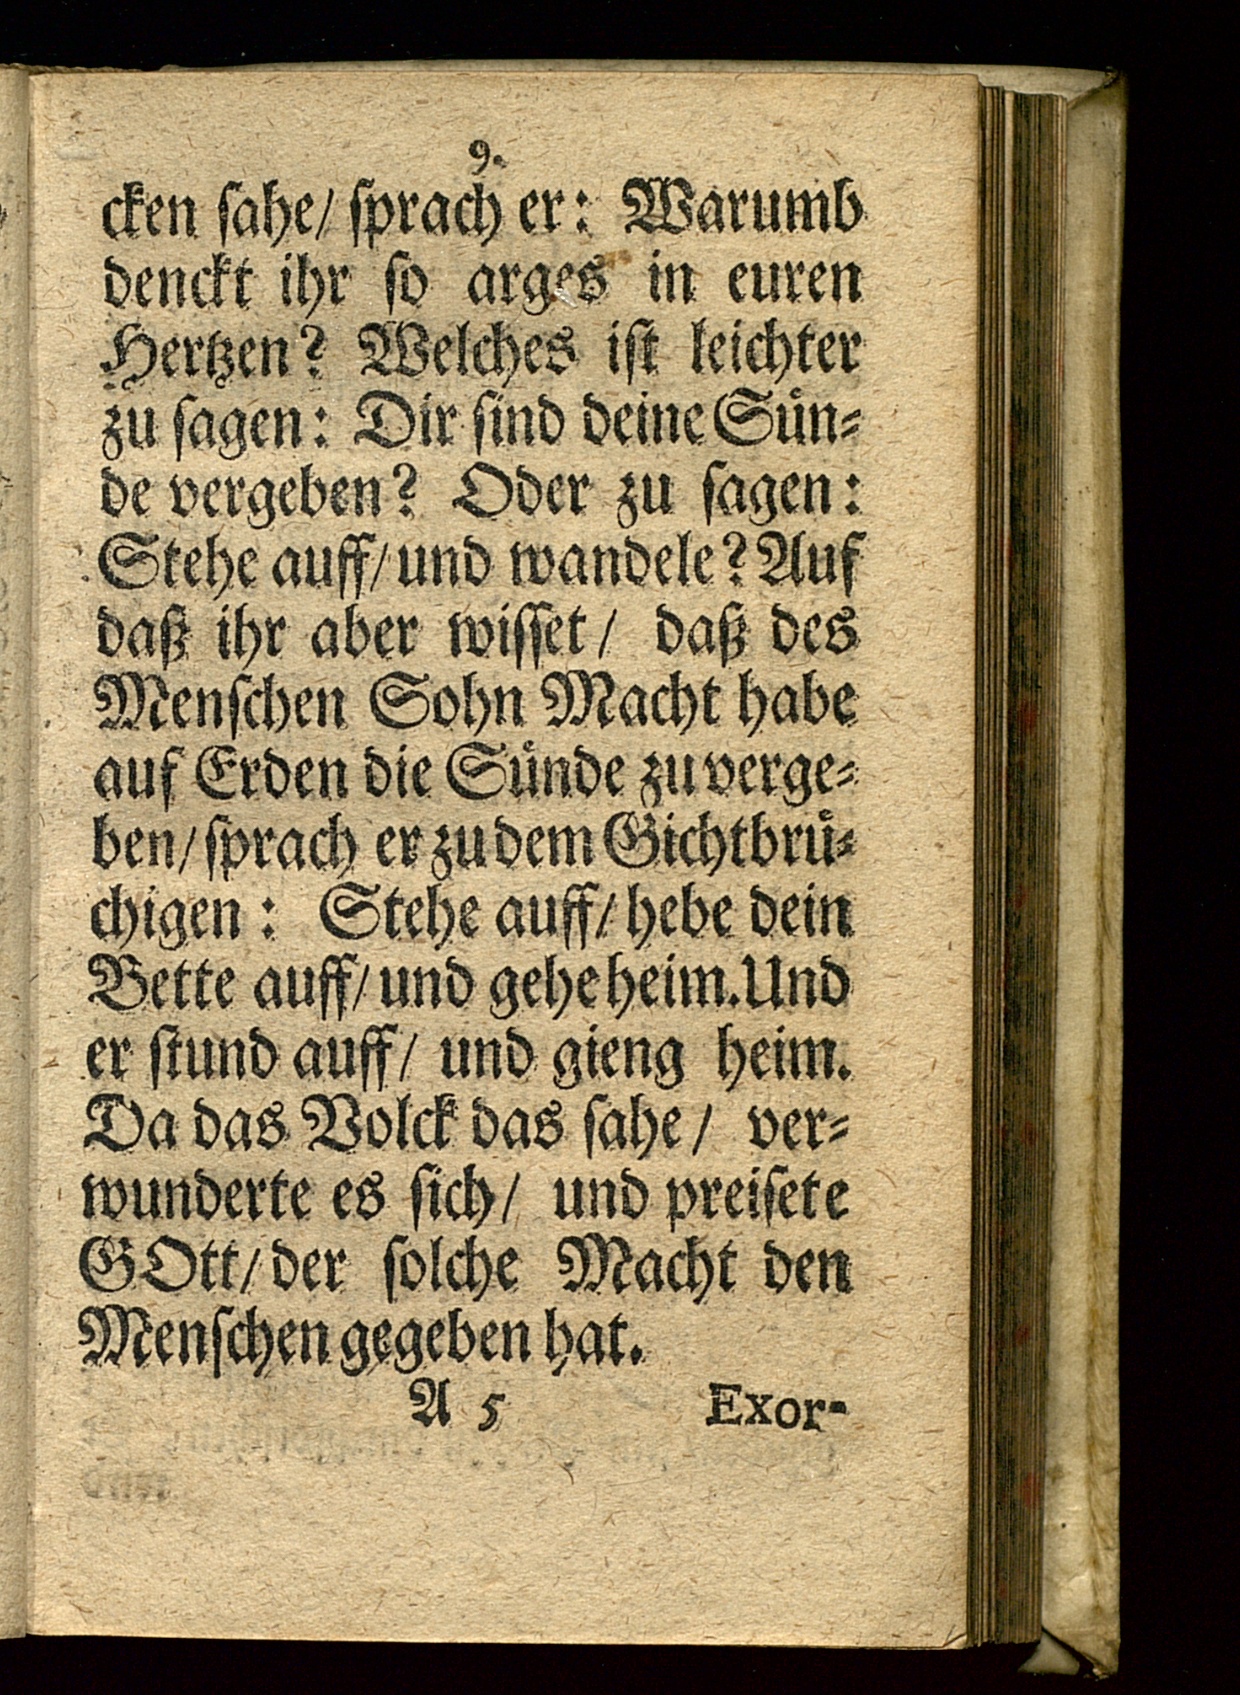 9.
cken ſahe/ ſprach er: Warumb
denckt ihr ſo arges in euren
Hertzen? Welches iſt leichter
zu ſagen: Dir ſind deine Suͤn⸗
de vergeben? Oder zu ſagen:
Stehe auff/ und wandele? Auf
daß ihr aber wiſſet/ daß des
Menſchen Sohn Macht habe
auf Erden die Suͤnde zu verge⸗
ben/ ſprach er zu dem Gichtbruͤ⸗
chigen: Stehe auff/ hebe dein
Bette auff/ und gehe heim. Und
er ſtund auff/ und gieng heim.
Da das Volck das ſahe/ ver⸗
wunderte es ſich/ und preiſete
GOtt/ der ſolche Macht den
Menſchen gegeben hat.
A 5 Exor-